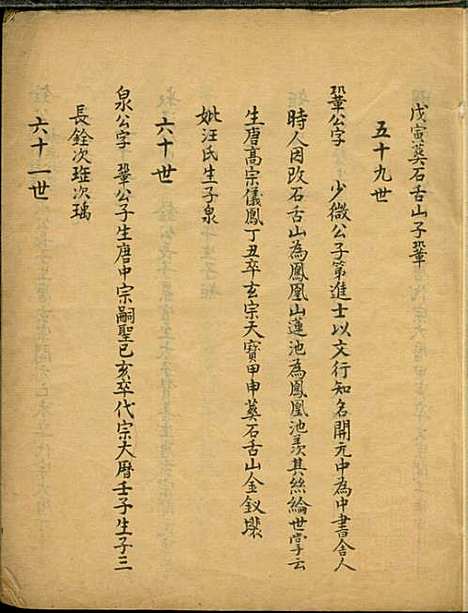 戊寅葬石舌山子鞏
五十九世
鞏公字 少微公子第進士以文行知名開元中為中書舍人
時人因改石舌山為鳳凰山蓮池為鳳凰池羨其絲綸世掌云
生唐高宗儀鳳丁丑卒玄宗天寶甲申葬石舌山金釵
妣汪氏生子泉
六十世
泉公字 鞏公子生唐中宗嗣聖己亥卒代宗大曆壬子生子三
長銓次班次瑀
六十一世